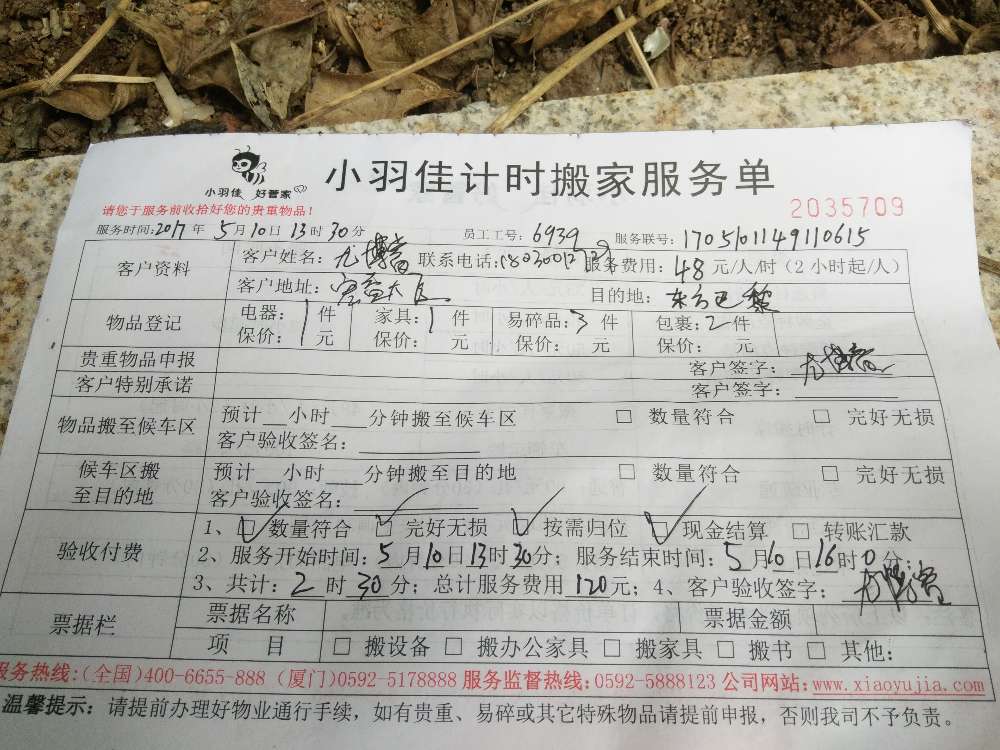 小羽佳 好管家
小羽佳计时搬家服务单
请您于服务前收拾好您的贵重物品!
2035709
服务时间:2017年 5月10日 13时30分 员工工号:6939 服务联号:1705101149110615
客户资料 客户姓名: 联系电话: 服务费用:48元/人/时(2小时起/人)
客户地址: 目的地:东方巴黎
物品登记 电器:1件 家具:1件 易碎品:3件 包裹:2件
保价: 元 保价: 元 保价: 元 保价: 元
贵重物品申报 客户签字:
客户特别承诺 客户签字:
物品搬至候车区 预计__小时___分钟搬至候车区 □ 数量符合 □ 完好无损
客户验收签名:
候车区搬至目的地 预计__小时___分钟搬至目的地 □ 数量符合 □ 完好无损
客户验收签名:
验收付费 1、☑数量符合 ☑完好无损 ☑按需归位 ☑现金结算 □ 转账汇款
2、服务开始时间:5月10日13时30分;服务结束时间:5月10日16时0分;
3、共计:2时30分;总计服务费用120元;4、客户验收签字:
票据栏 票据名称 票据金额
项 目 □ 搬设备 □ 搬办公家具 □ 搬家具 □ 搬书 □ 其他:
服务热线:(全国)400-6655-888 (厦门)0592-5178888 服务监督热线:0592-5888123 公司网站:www.xiaoyujia.com
温馨提示:请提前办理好物业通行手续,如有贵重、易碎或其它特殊物品请提前申报,否则我司不予负责。